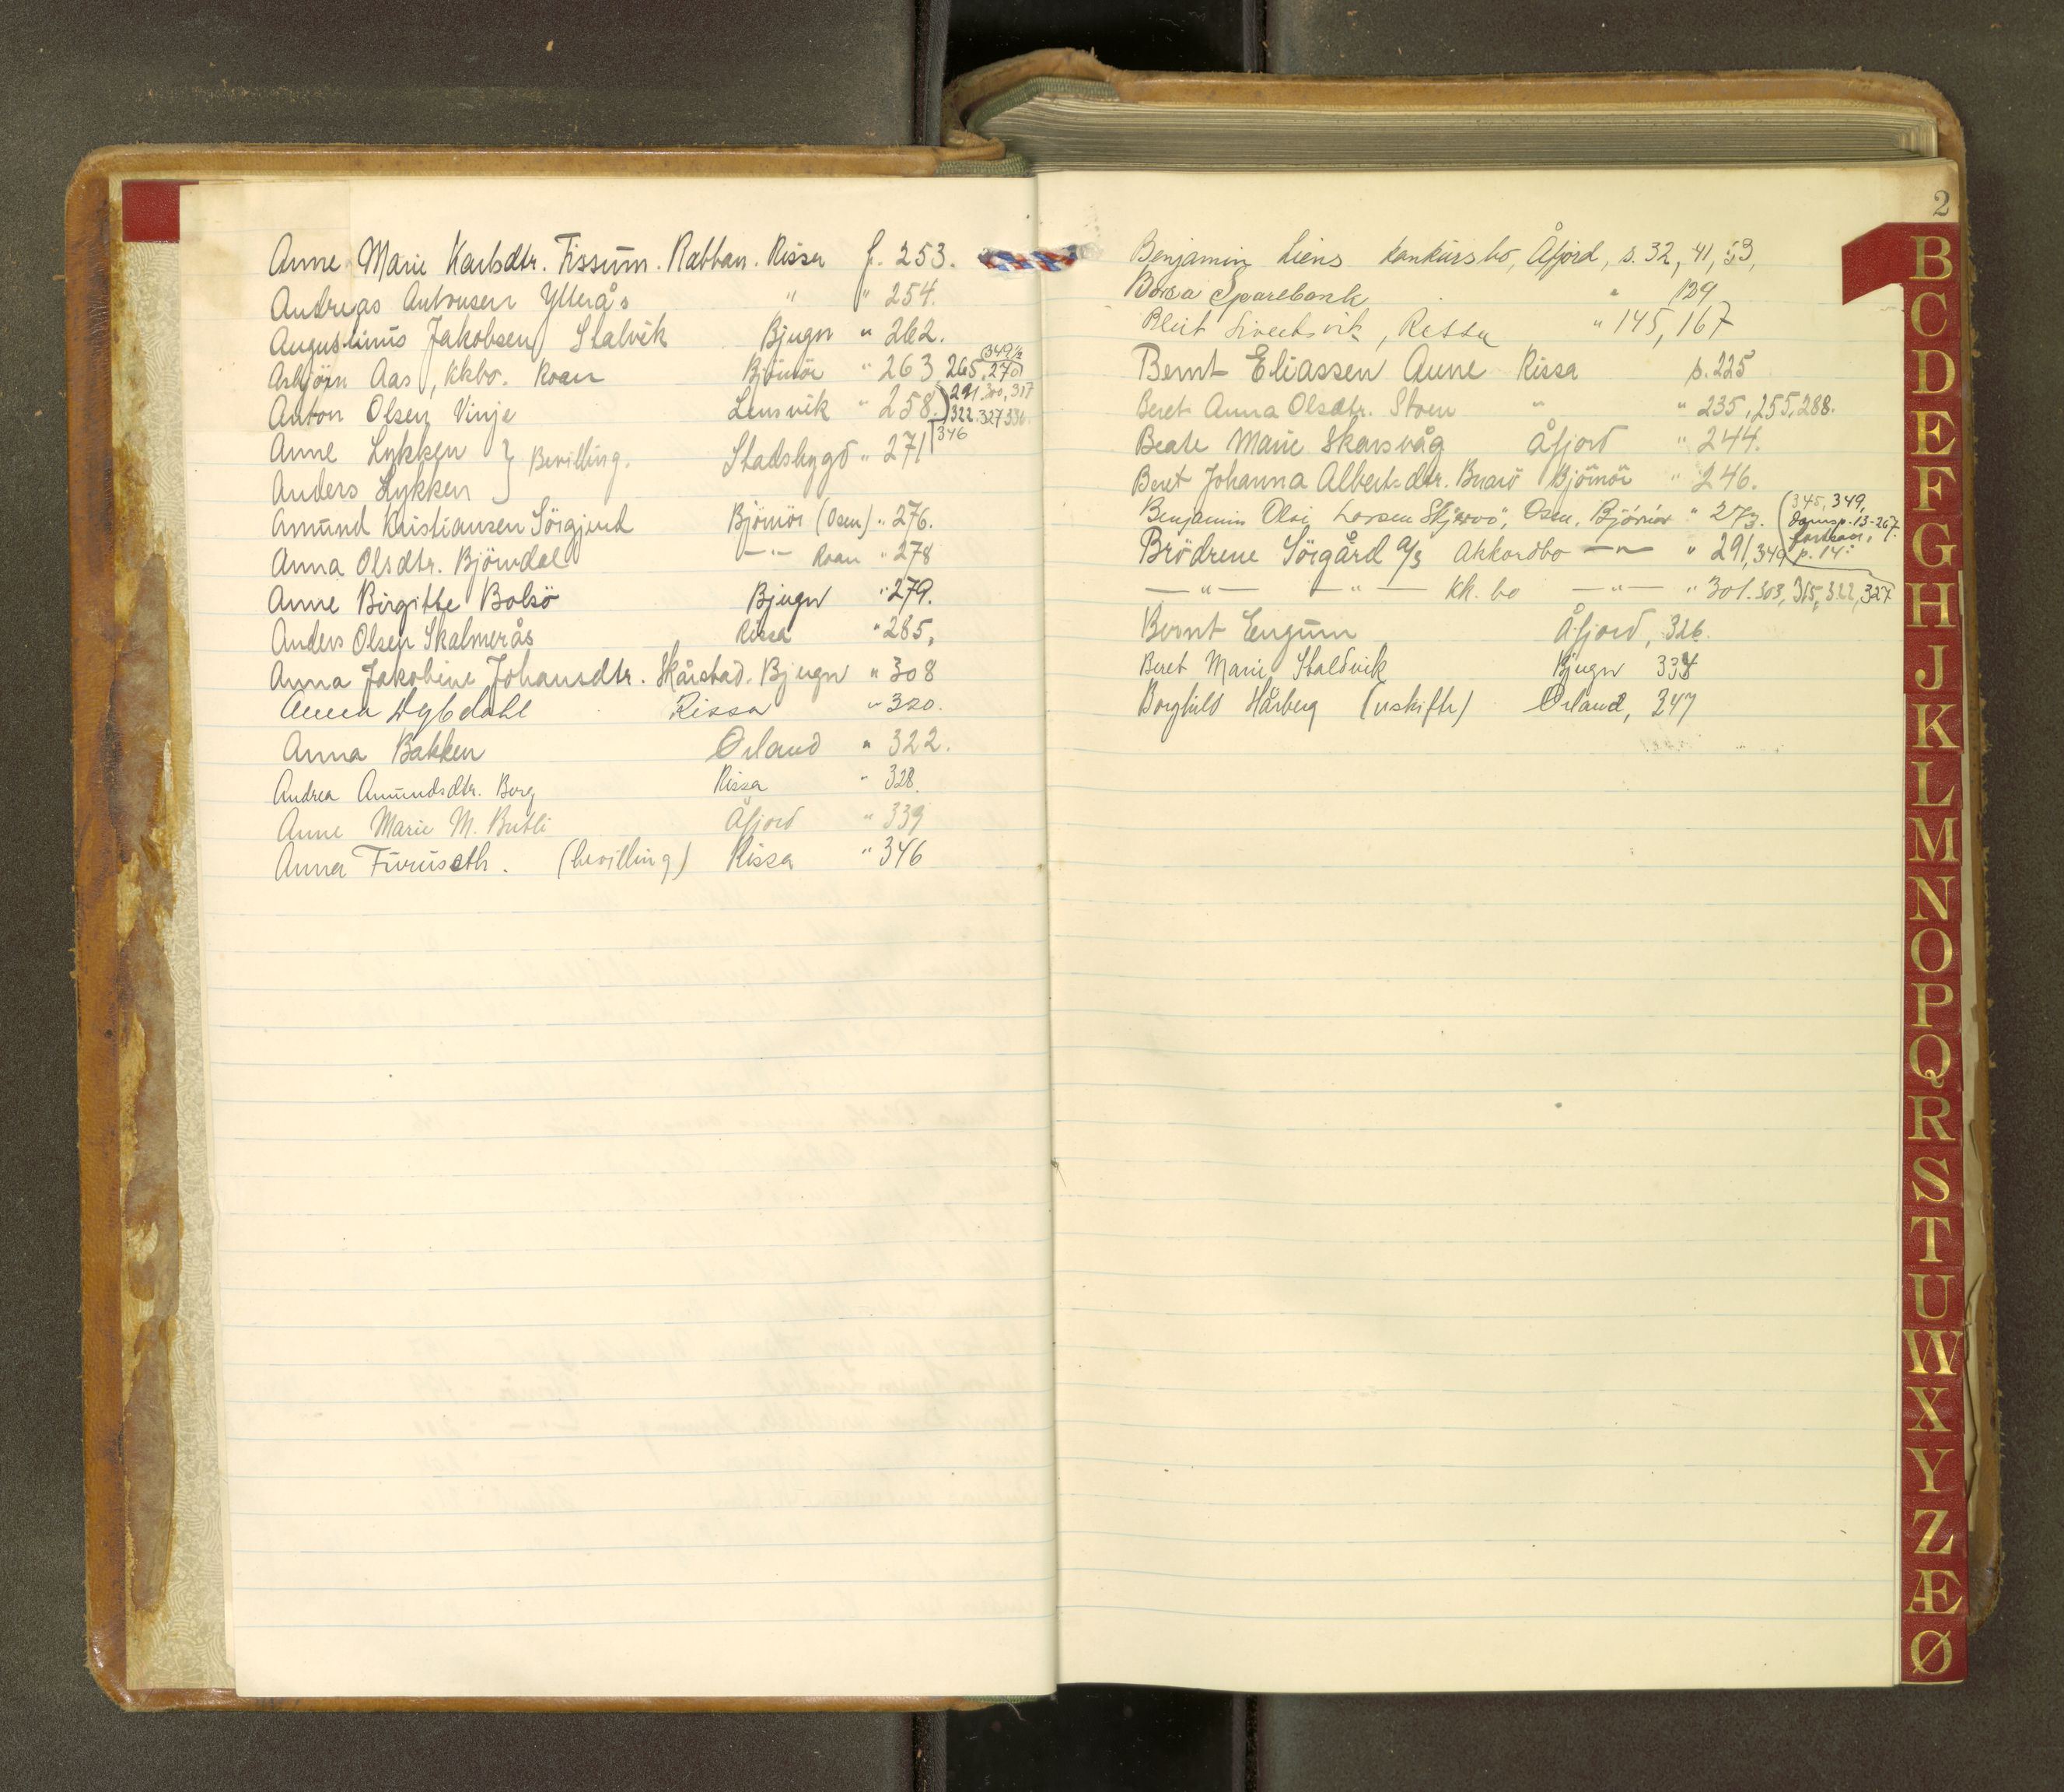 Anne Marie Karlsdtr. Fissum. Rabban. Rissa f. 253.
Andreas Antonsen Ytterås " " 254.
Augustinus Jakobsen Stalvik Bjugn " 262.
Asbjörn Aas, kkbo. Roan Björnör " 263 265, 270, 349½
Anton Olsen Vinje Lensvik " 258. 291. 300, 317
322. 327 336.
Anne Lykken } Bevilling. Stadsbygd " 271 346
Anders Lykken
Amund Kristiansen Sörgjerd Björnör (Osen) " 276.
Anna Olsdtr. Björndal —"— Roan " 278
Anne Birgitte Bolsö Bjugn " 279.
Anders Olsen Skalmerås Rissa " 285,
Anna Jakobine Johansdtr. Skårstad. Bjugn " 308
Anna Dybdahl Rissa " 320.
Anna Bakken Örland " 322.
Andrea Amundsdtr. Berg Rissa " 328.
Anne Marie M. Butli Åfjord " 339
Anna Furuseth. (bevilling) Rissa " 346
2
Benjamin Liens konkursbo, Åfjord, s. 32, 41, 53,
Börsa Sparebank " 129
Rissa " 145, 167
Bernt Eliassen Aune Rissa p. 225
Beret Anna Olsdtr. Stoen " " 235, 255, 288.
Beate Marie Skarsvåg Åfjord " 244.
Beret Johanna Albert-dtr. Björnör " 246.
Benjamin Olai Larsen Skjervö, Osen, Björnör " 273. (345, 349,
p. 13-267.
Brödrene Sörgård A/S Akkordbo —"— " 291, 349 p. 14.
—"— —"— kk. bo —"— " 301. 303, 315, 322, 327
Bernt Engum Åfjord, 326.
Beret Marie Staldvik Bjugn 334
Borghild Hårberg (uskifte) Örland, 347
B
C
D
E
F
G
H
J
K
L
M
N
O
P
Q
R
S
T
U
W
X
Y
Z
Æ
Ø